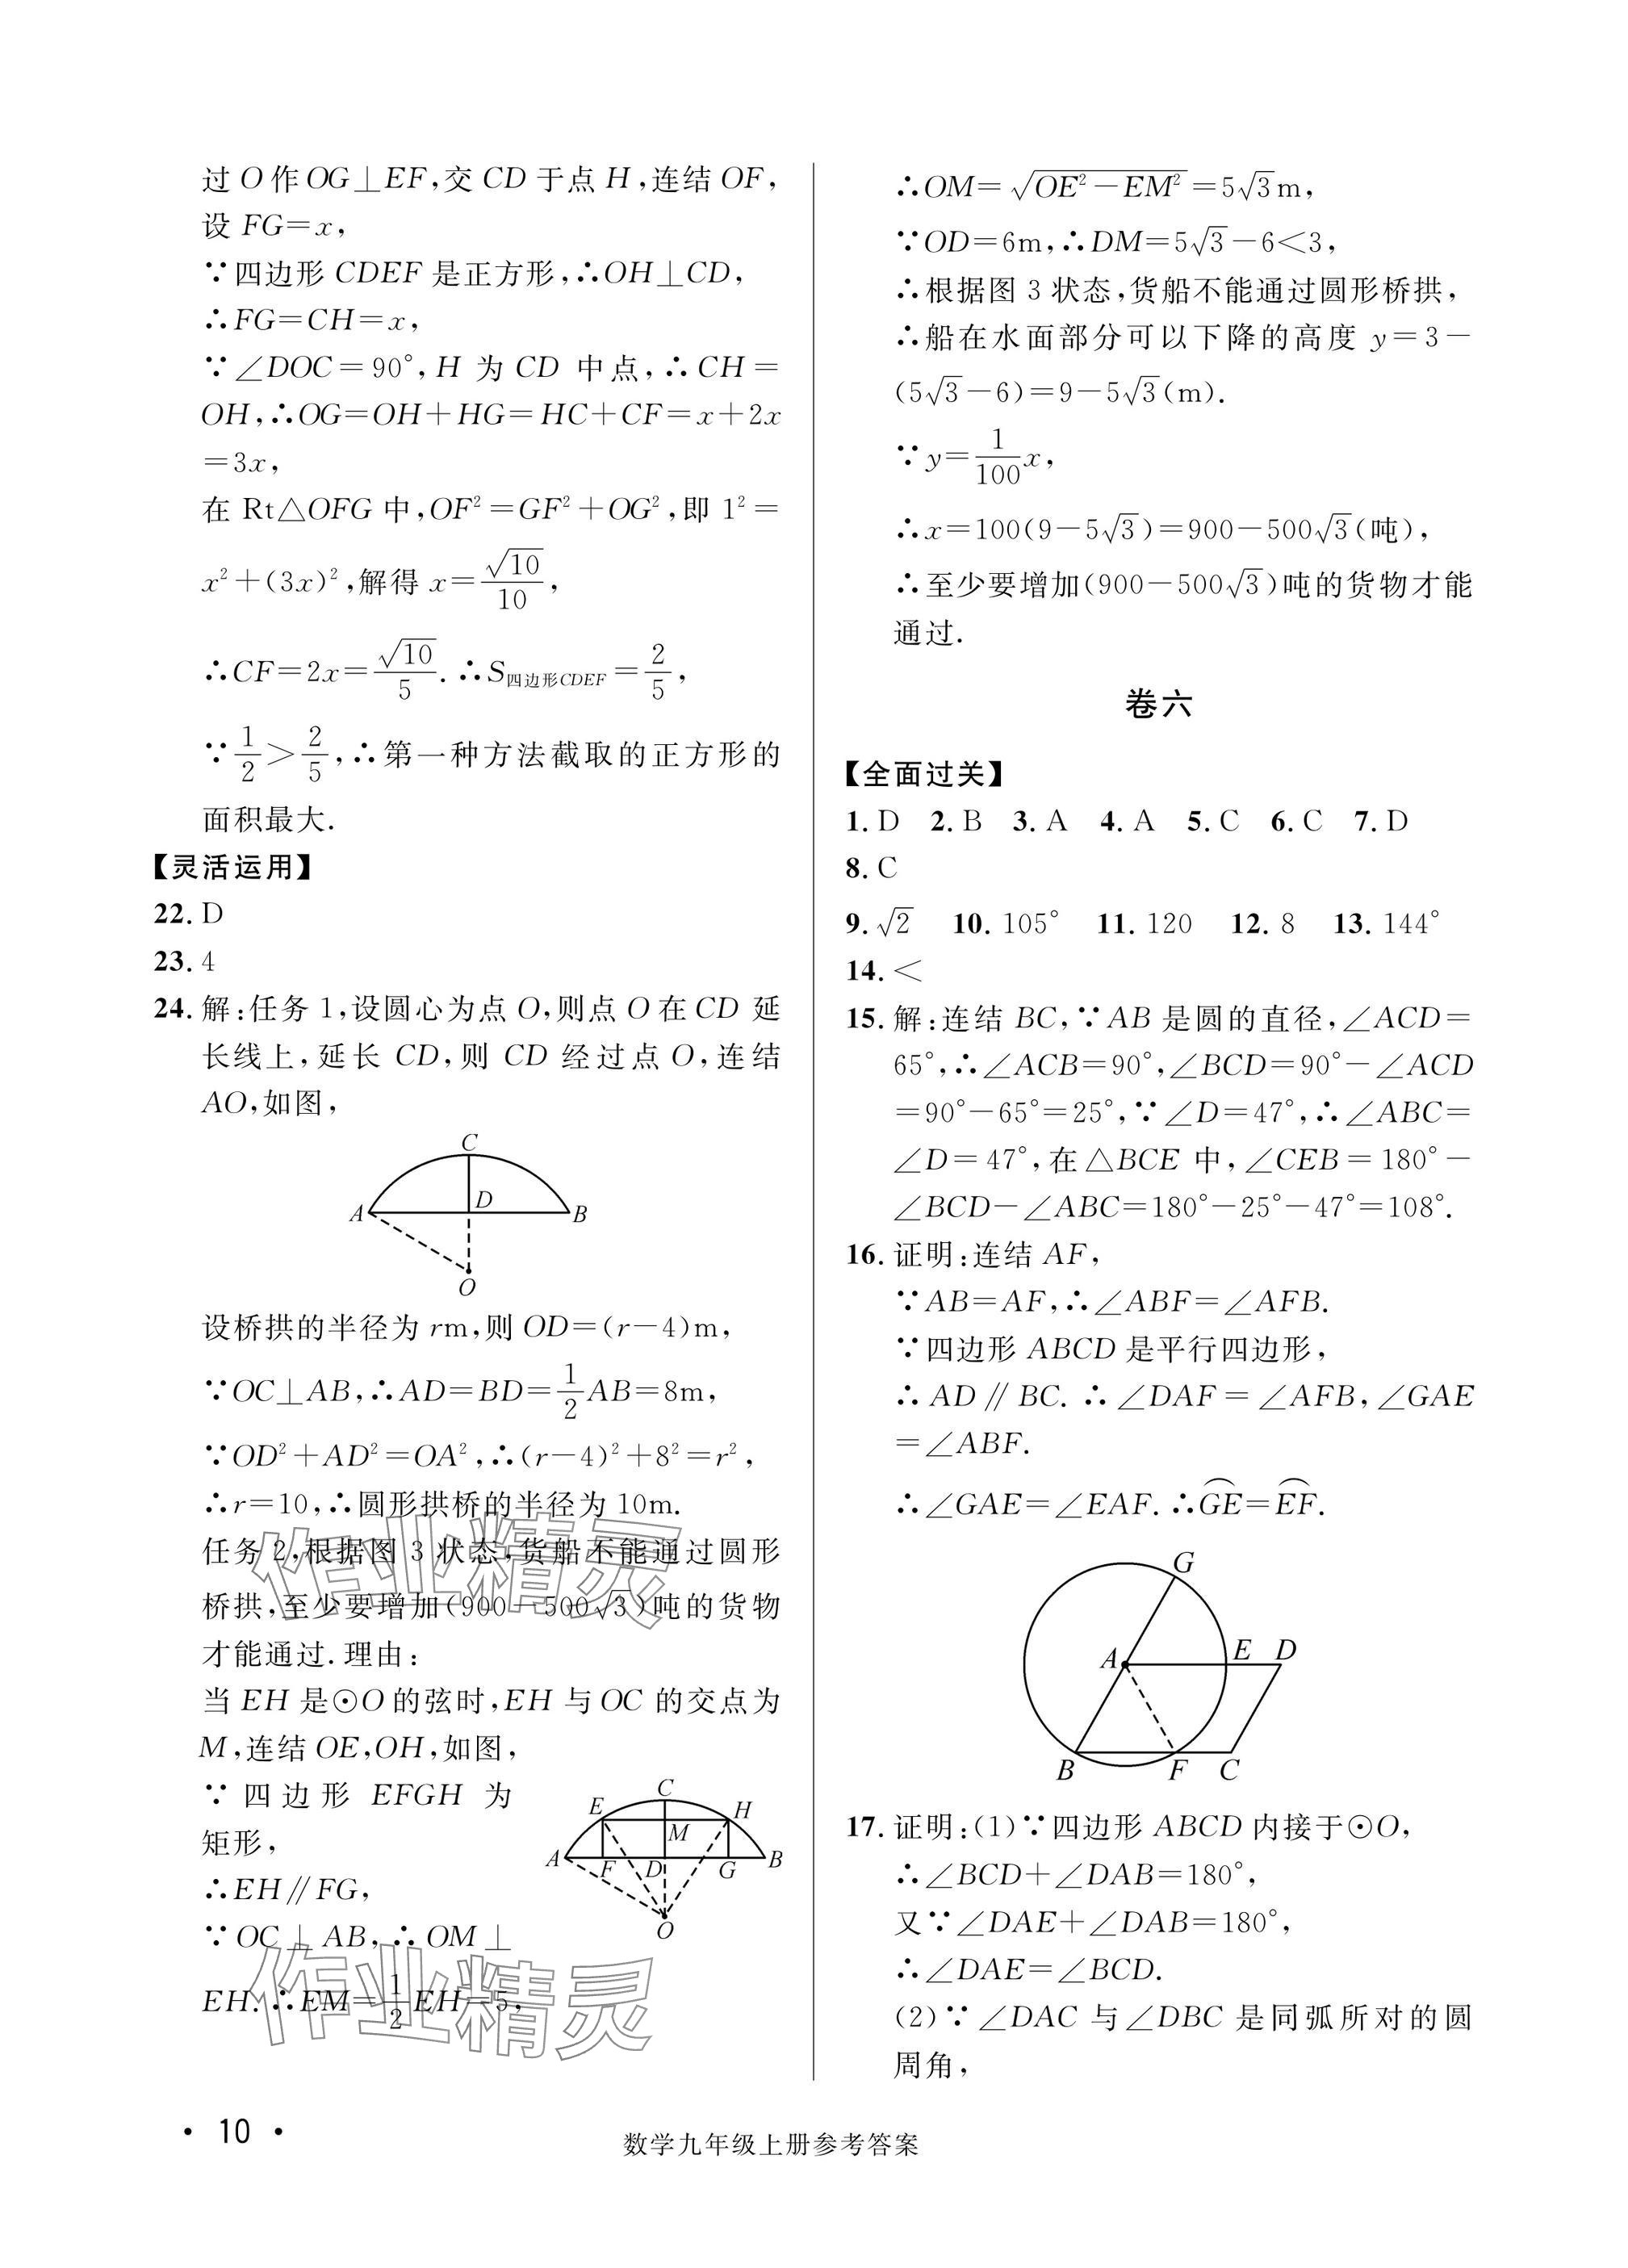 过O作OG⊥EF,交CD于点H,连结OF,
设FG=x,
∵四边形CDEF是正方形,∴OH⊥CD,
∴FG=CH=x,
∵∠DOC=90°,H为CD中点,∴CH=
OH,∴OG=OH+HG=HC+CF=x+2x
=3x,
在Rt△OFG中,OF²=GF²+OG²,即1²=
x²+(3x)²,解得x=√10/10,
∴CF=2x=√10/5.∴S四边形CDEF=2/5,
∵1/2>2/5,∴第一种方法截取的正方形的
面积最大.
【灵活运用】
22.D
23.4
24.解:任务1,设圆心为点O,则点O在CD延
长线上,延长CD,则CD经过点O,连结
AO,如图,
C
D
A
B
O
设桥拱的半径为rm,则OD=(r-4)m,
∵OC⊥AB,∴AD=BD=1/2AB=8m,
∵OD²+AD²=OA²,∴(r-4)²+8²=r²,
∴r=10,∴圆形拱桥的半径为10m.
任务2,根据图3状态,货船不能通过圆形
桥拱,至少要增加(900-500√3)吨的货物
才能通过.理由:
当EH是⊙O的弦时,EH与OC的交点为
M,连结OE,OH,如图,
∵四边形EFGH为
矩形,
∴EH∥FG,
∵OC⊥AB,∴OM⊥
EH.∴EM=1/2EH=5,
C
E
H
M
A
F
D
G
B
O
作业精灵
作业精灵
∴OM=√(OE²-EM²)=5√3m,
∵OD=6m,∴DM=5√3-6<3,
∴根据图3状态,货船不能通过圆形桥拱,
∴船在水面部分可以下降的高度y=3-
(5√3-6)=9-5√3(m).
∵y=1/100x,
∴x=100(9-5√3)=900-500√3(吨),
∴至少要增加(900-500√3)吨的货物才能
通过.
卷六
【全面过关】
1.D 2.B 3.A 4.A 5.C 6.C 7.D
8.C
9.√2 10.105° 11.120 12.8 13.144°
14.<
15.解:连结BC,∵AB是圆的直径,∠ACD=
65°,∴∠ACB=90°,∠BCD=90°-∠ACD
=90°-65°=25°,∵∠D=47°,∴∠ABC=
∠D=47°,在△BCE中,∠CEB=180°-
∠BCD-∠ABC=180°-25°-47°=108°.
16.证明:连结AF,
∵AB=AF,∴∠ABF=∠AFB.
∵四边形ABCD是平行四边形,
∴AD∥BC.∴∠DAF=∠AFB,∠GAE
=∠ABF.
∴∠GAE=∠EAF.∴G͡E=E͡F.
G
A
E
D
B
F
C
17.证明:(1)∵四边形ABCD内接于⊙O,
∴∠BCD+∠DAB=180°,
又∵∠DAE+∠DAB=180°,
∴∠DAE=∠BCD.
(2)∵∠DAC与∠DBC是同弧所对的圆
周角,
·10·
数学九年级上册参考答案